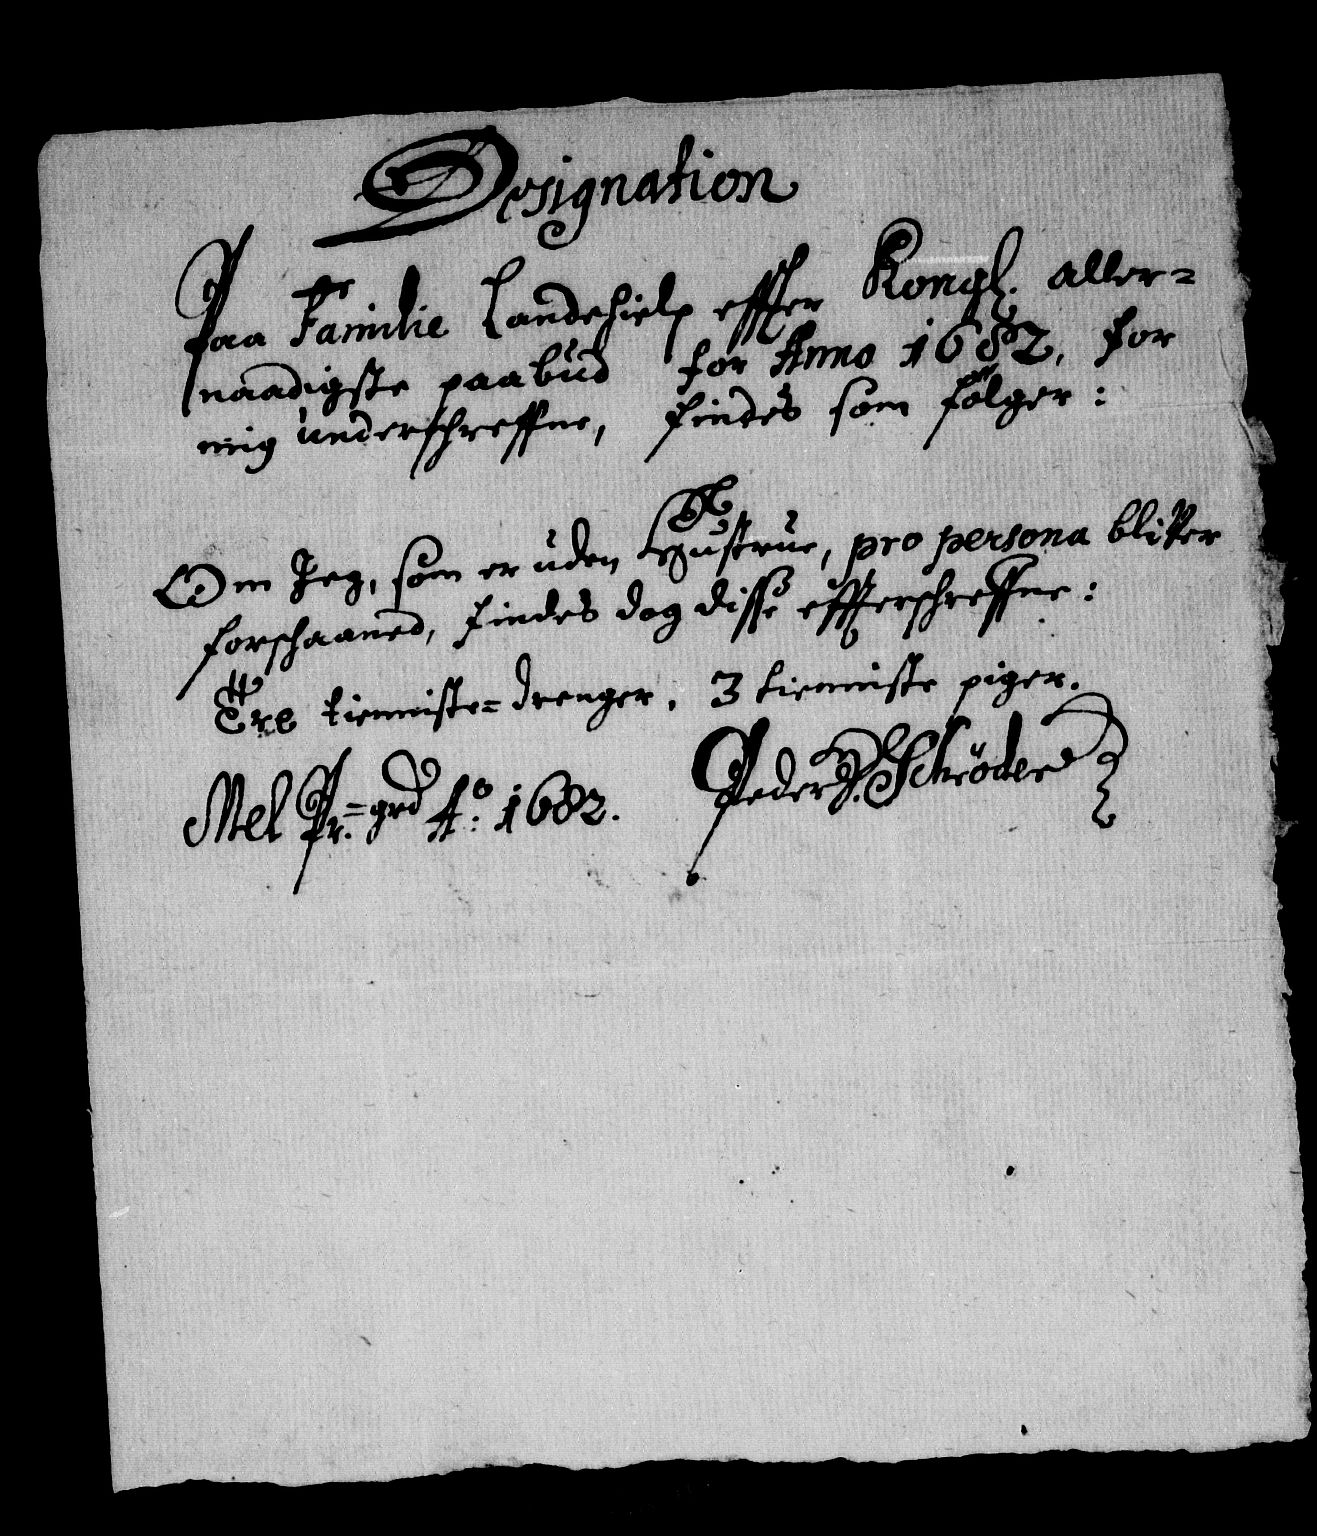 Designation
Paa Familie Landehielp effter Kongl. aller=
naadigste paabud for Anno 1682, for
mig underschreffne, findes som følger:
Om Jeg, som er uden Hustrue, pro persona bliver
forschaaned, findes dog disse effterschreffne:
Tre tienniste=drenger, 3 tienniste piger.
Mel Pr.=grd Aº: 1682. Peder J. Schröder